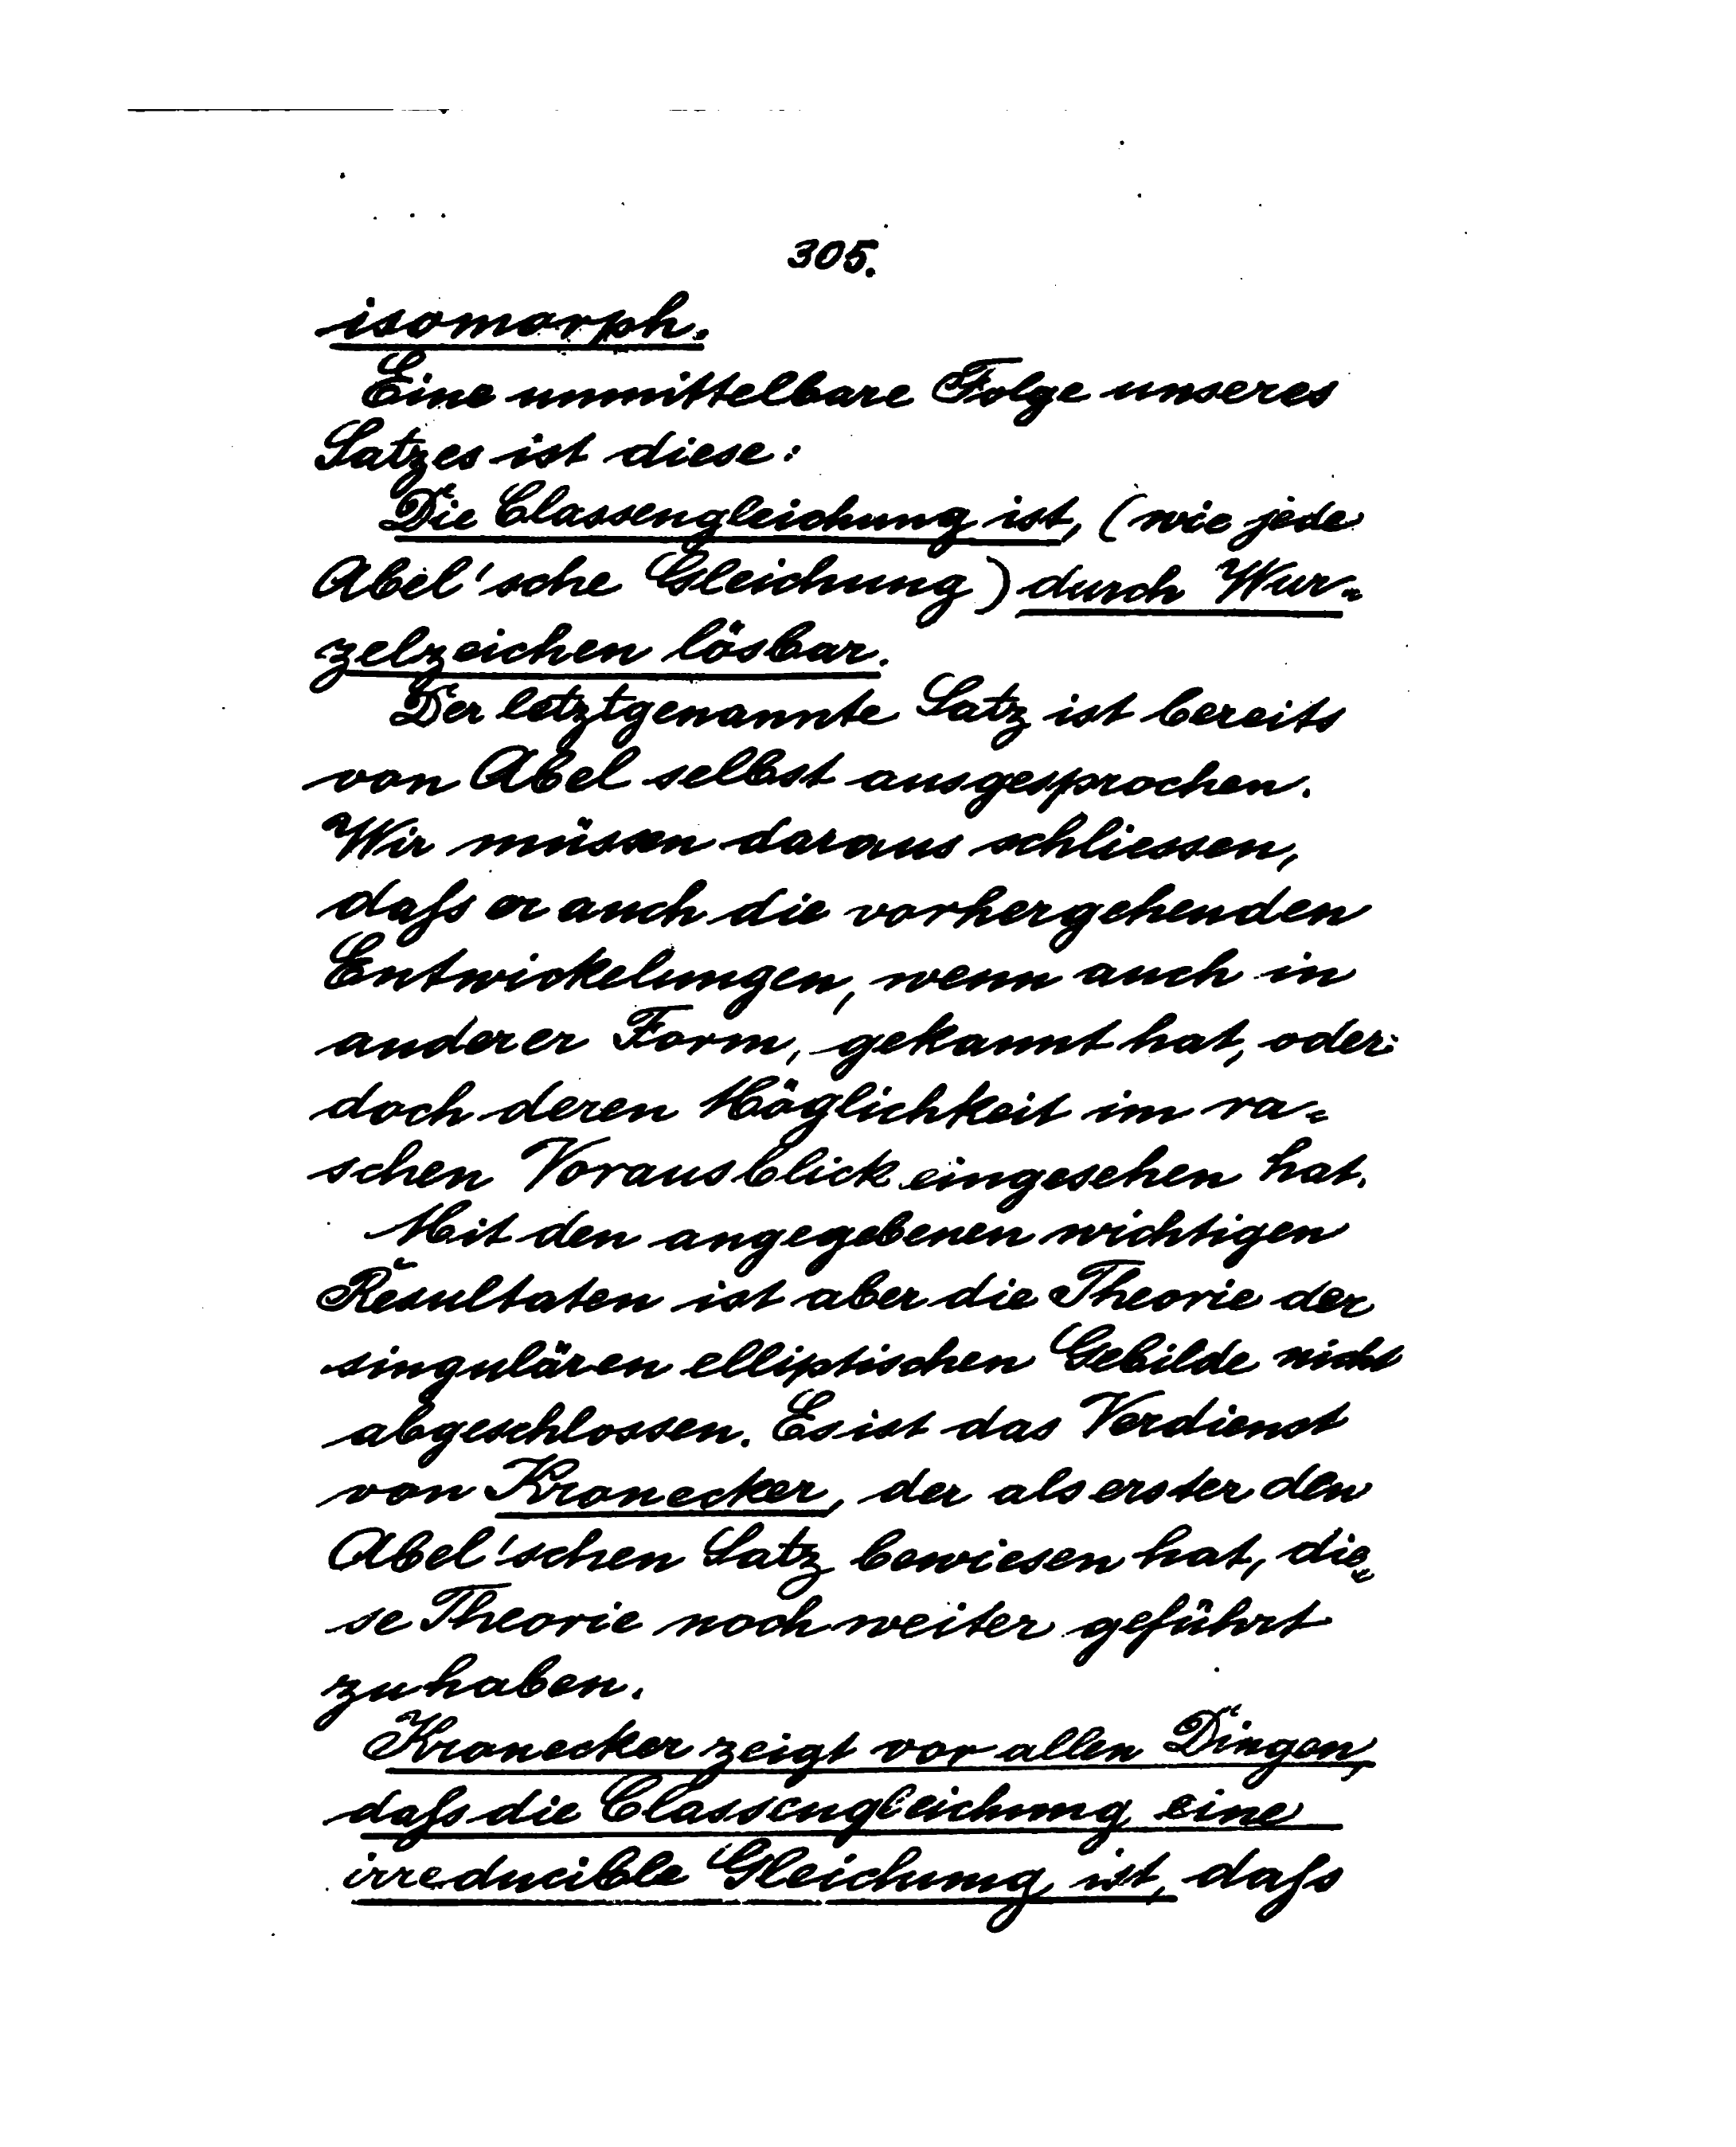 305.
isomorph.
Eine unmittelbare Folge unseres
Satzes ist diese:
Die Classengleichung ist, (wie jede
Abel'sche Gleichung) durch Wur-
zelzeichen lösbar.
Der letztgenannte Satz ist bereits
von Abel selbst ausgesprochen.
Wir müssen daraus schliessen,
daſs er auch die vorhergehenden
Entwickelungen, wenn auch in
anderer Form, gekannt hat, oder
doch deren Möglichkeit im ra-
schen Vorausblick eingesehen hat.
Mit den angegebenen wichtigen
Resultaten ist aber die Theorie der
singulären elliptischen Gebilde nicht
abgeschlossen. Es ist das Verdienst
von Kronecker, der als erster den
Abel'schen Satz bewiesen hat, die-
se Theorie noch weiter geführt
zu haben.
Kronecker zeigt vor allen Dingen,
daſs die Classengleichung eine
irreducible Gleichung ist, daſs